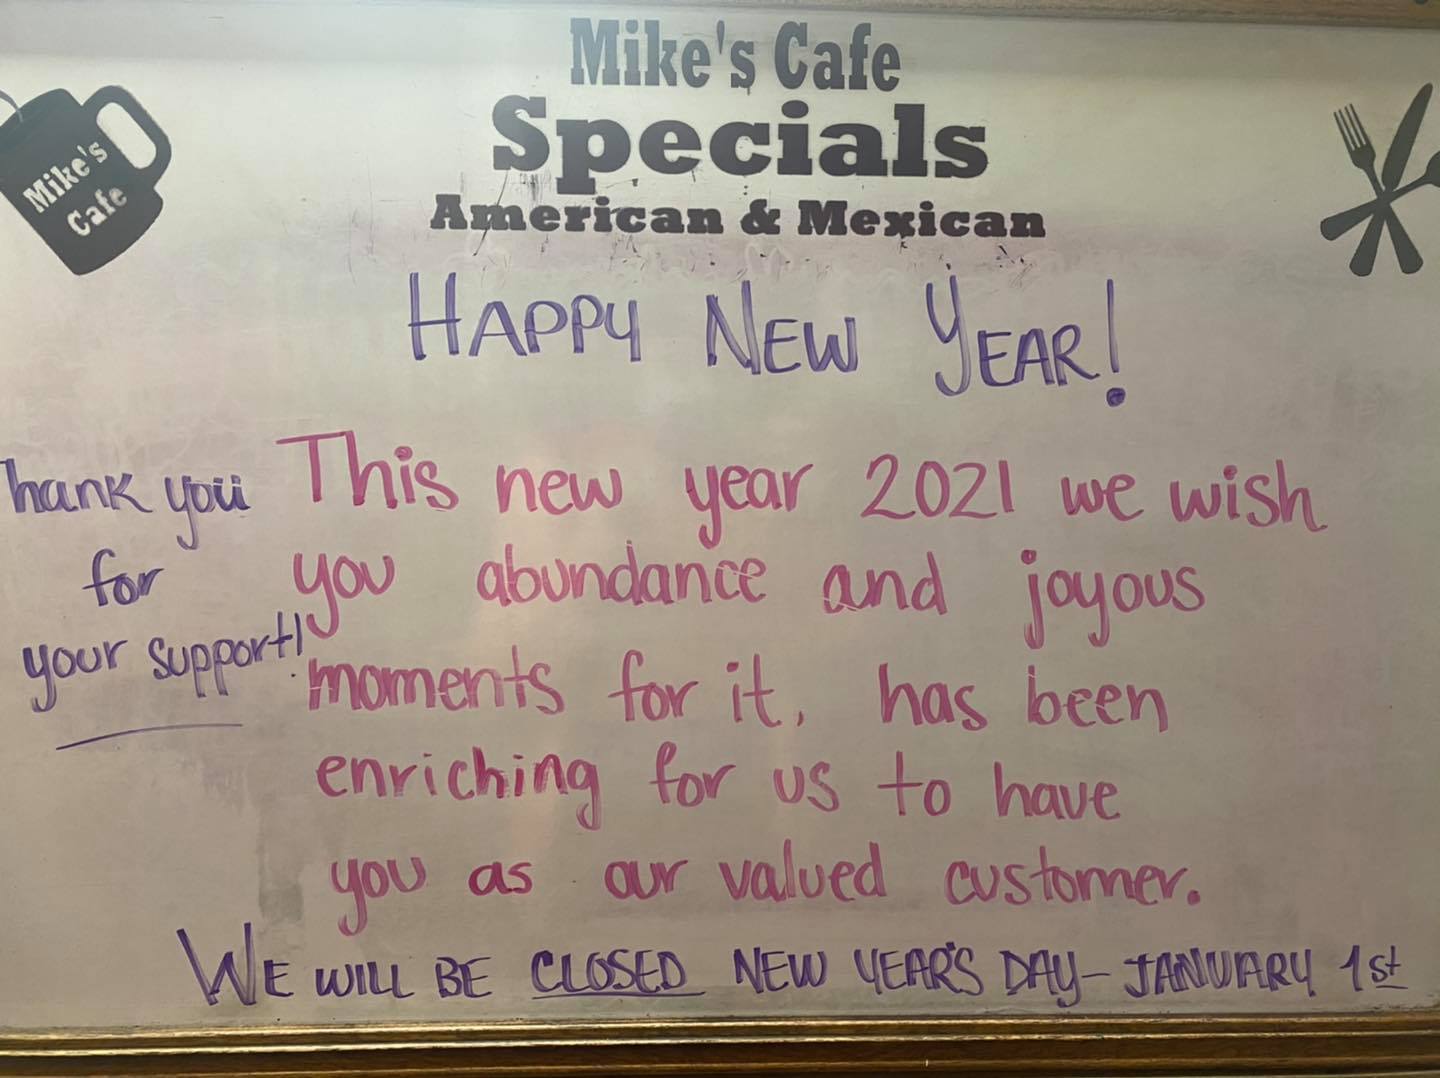 Mike's Cafe
Specials
American & Mexican
Mike's
Cafe
HAPPY NEW YEAR!
Thank you
for
your support!
This new year 2021 we wish
you abundance and joyous
moments for it, has been
enriching for us to have
you as our valued customer.
WE WILL BE CLOSED NEW YEAR'S DAY - JANUARY 1st